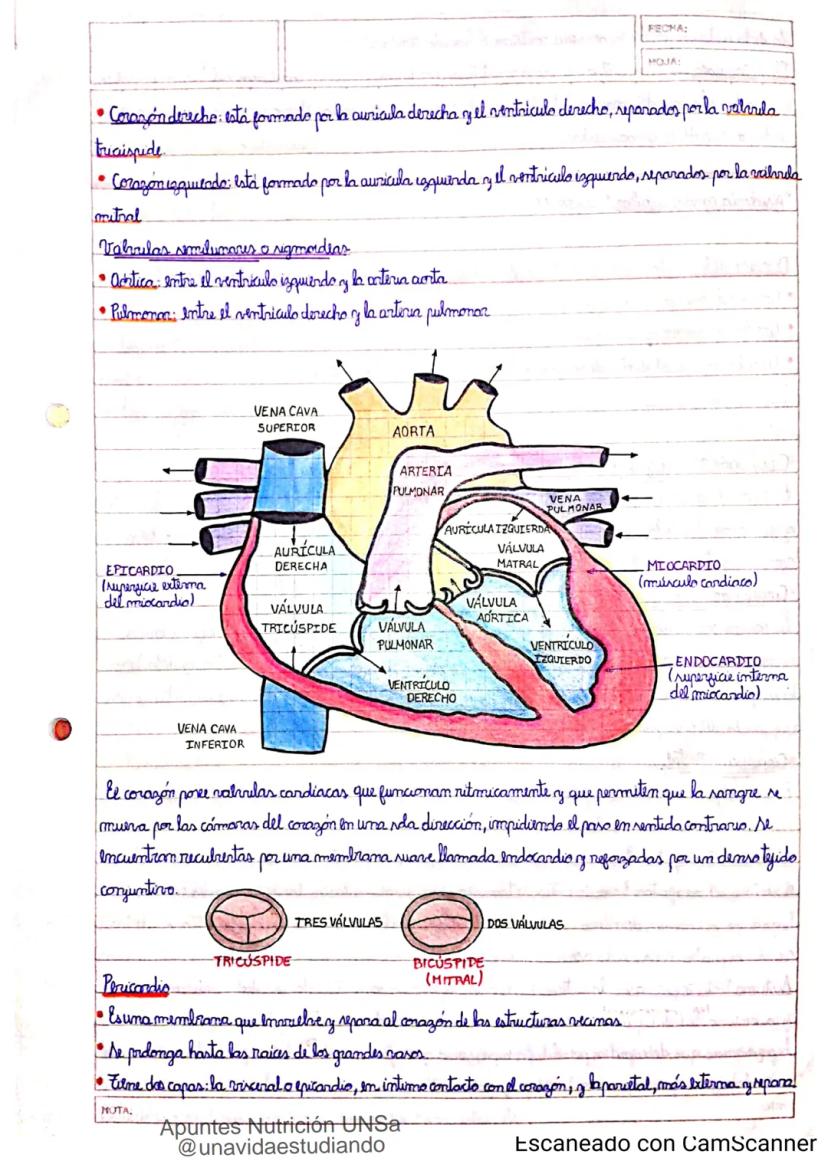 FECHA:
HOJA:
• Corazón derecho: está formado por la aurícula derecha y el ventrículo derecho, separados por la válvula
tricúspide.
• Corazón izquierdo: está formado por la aurícula izquierda y el ventrículo izquierdo, separados por la válvula
mitral
Válvulas semilunares o sigmoideas
• Aórtica: entre el ventrículo izquierdo y la arteria aorta
• Pulmonar: entre el ventrículo derecho y la arteria pulmonar
VENA CAVA
SUPERIOR
AORTA
ARTERIA
PULMONAR
VENA
PULMONAR
AURÍCULA IZQUIERDA
AURÍCULA
DERECHA
VÁLVULA
MATRAL
EPICARDIO
(superficie externa
del miocardio)
MIOCARDIO
(músculo cardiaco)
VÁLVULA
TRICÚSPIDE
VÁLVULA
PULMONAR
VÁLVULA
AÓRTICA
VENTRÍCULO
IZQUIERDO
ENDOCARDIO
(superficie interna
del miocardio)
VENTRÍCULO
DERECHO
VENA CAVA
INFERIOR
El corazón posee válvulas cardíacas que funcionan rítmicamente y que permiten que la sangre se
mueva por las cámaras del corazón en una sola dirección, impidiendo el paso en sentido contrario. Se
encuentran recubiertas por una membrana suave llamada endocardio y reforzadas por un denso tejido
conjuntivo.
TRES VÁLVULAS
DOS VÁLVULAS
TRICÚSPIDE
BICÚSPIDE
(MITRAL)
Pericardio
• Es una membrana que envuelve y separa al corazón de las estructuras vecinas
• Se prolonga hasta las raíces de los grandes vasos.
• Tiene dos capas: la visceral o epicardio, en intimo contacto con el corazón, y la parietal, más externa y separa
NOTA:
Apuntes Nutrición UNSa
@unavidaestudiando
Escaneado con CamScanner